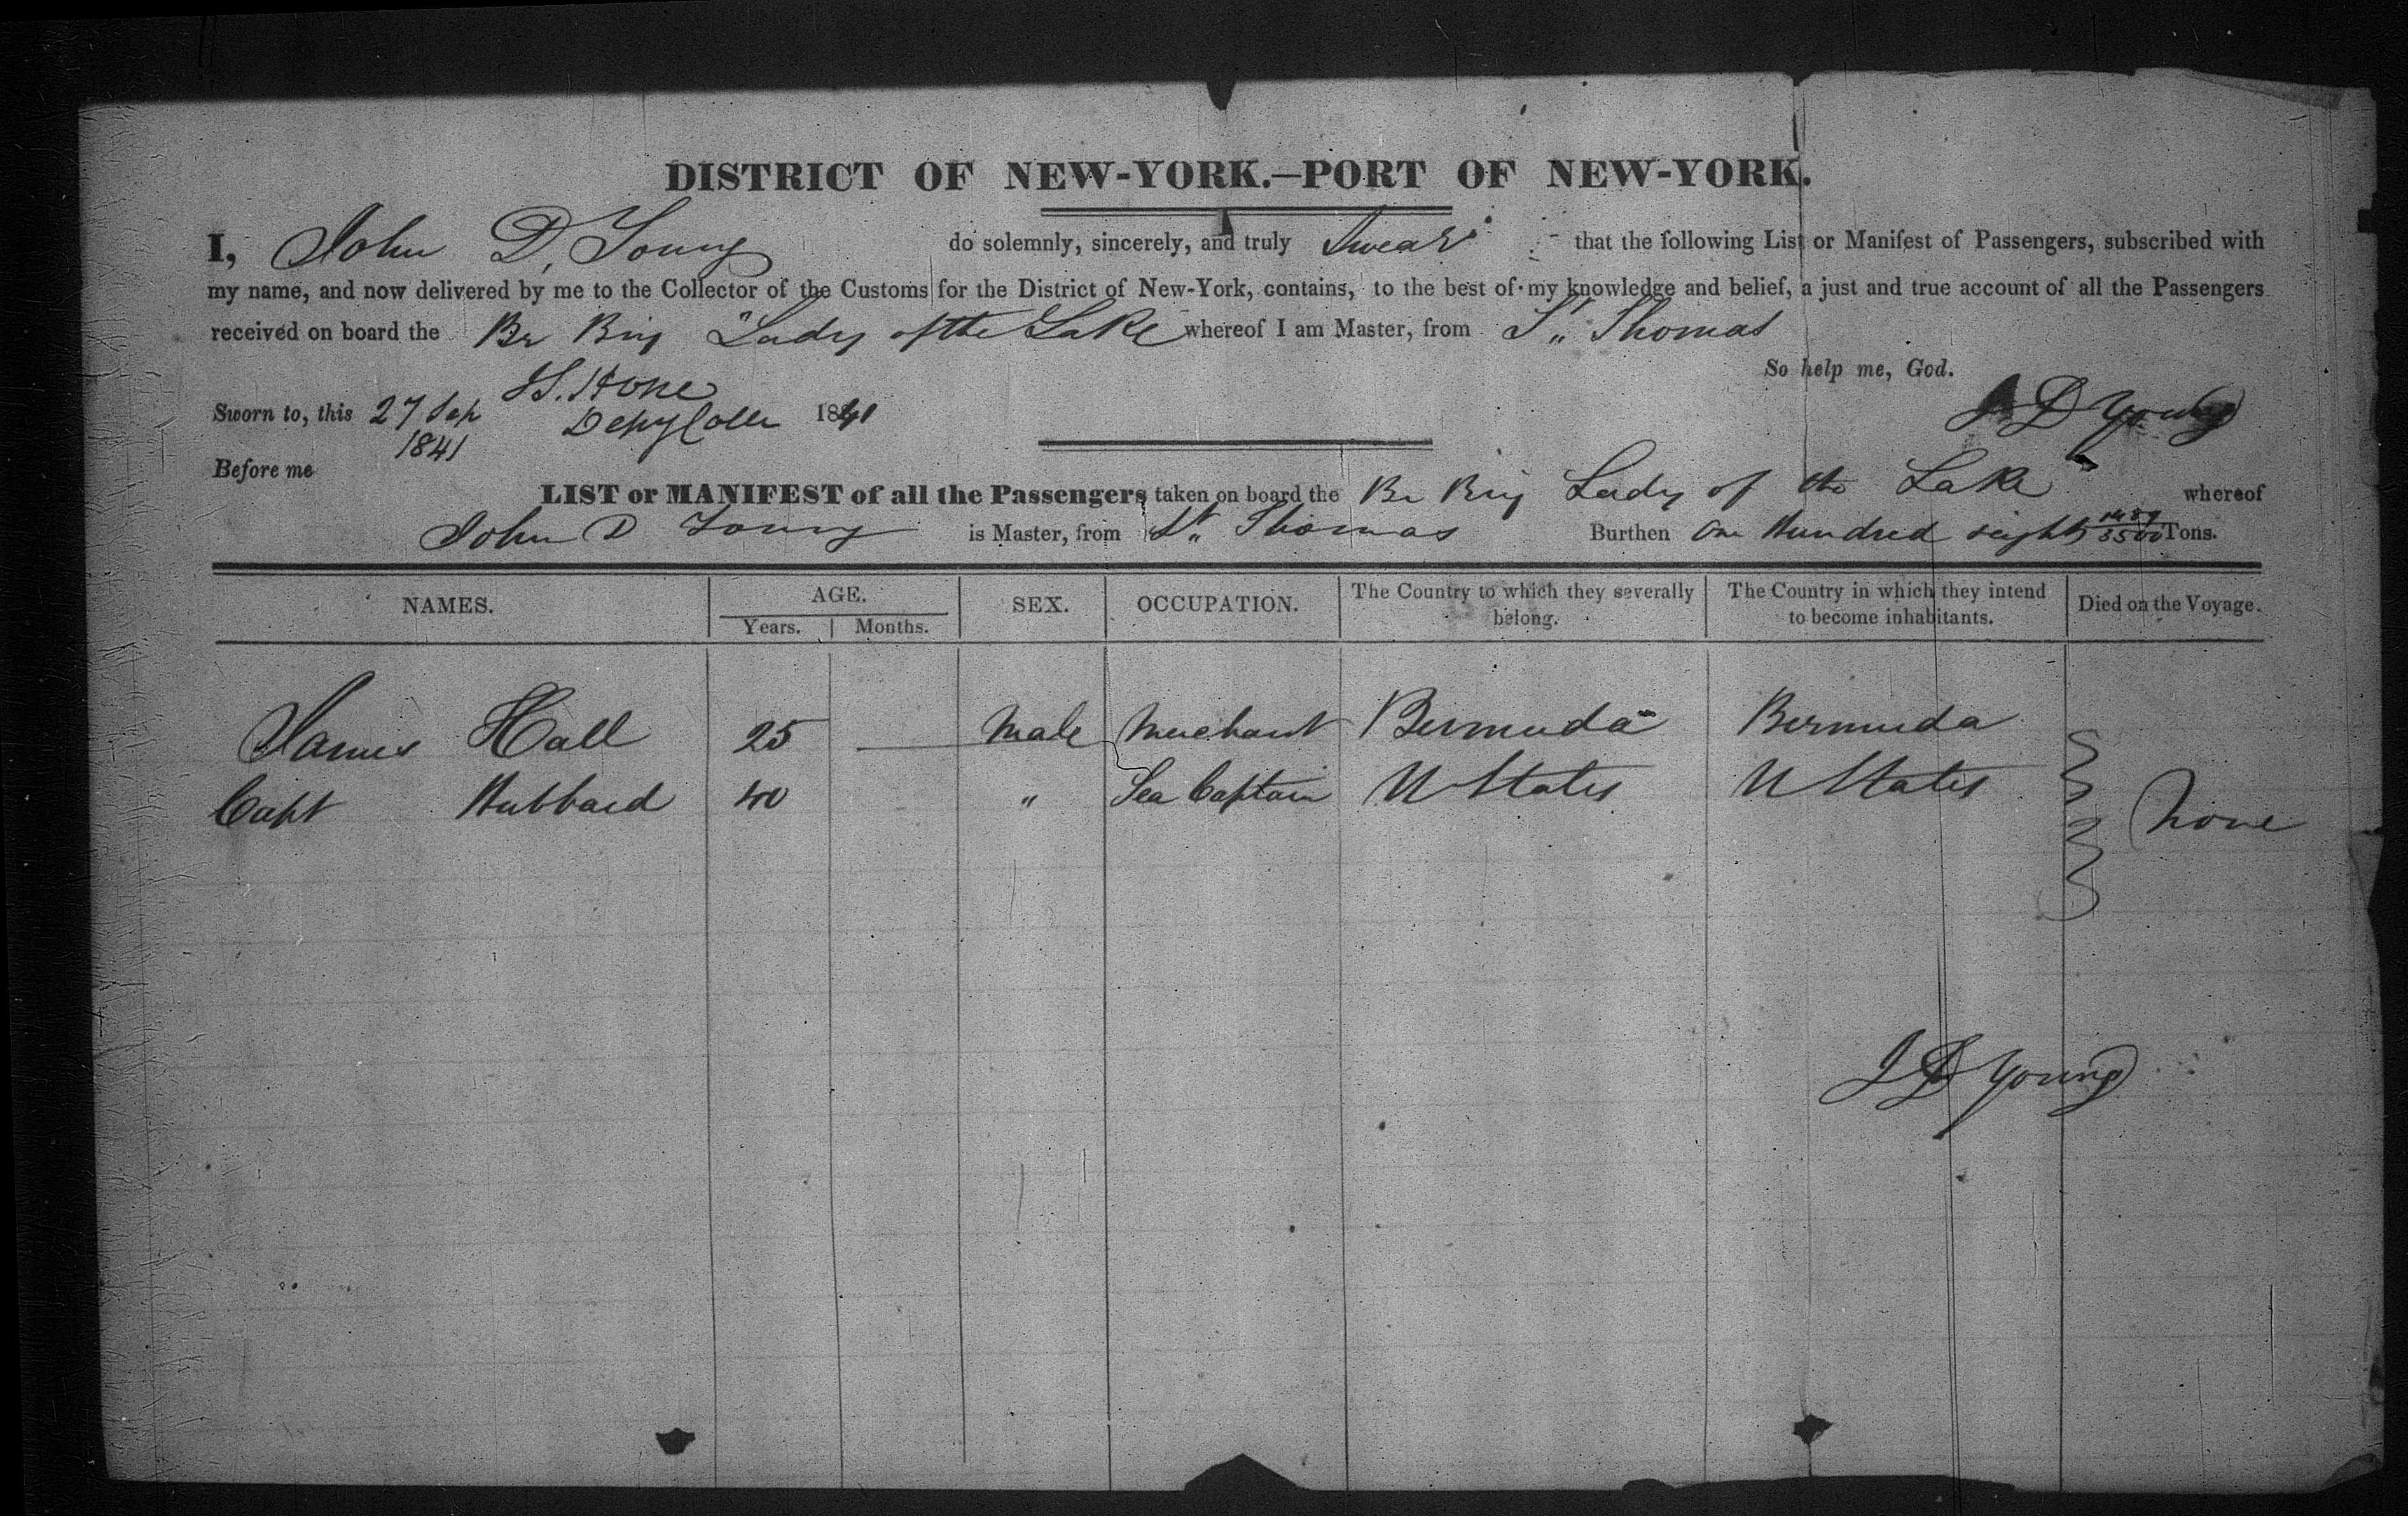 DISTRICT OF NEW-YORK.—PORT OF NEW-YORK.
I, John D, Young do solemnly, sincerely, and truly Swear that the following List or Manifest of Passengers, subscribed with
my name, and now delivered by me to the Collector of the Customs for the District of New-York, contains, to the best of my knowledge and belief, a just and true account of all the Passengers
received on board the Br Brig "Lady of the Lake whereof I am Master, from St Thomas
So help me, God.
Sworn to, this 27 Sep 1841
1841
Depy Coller
J D Young
Before me
LIST or MANIFEST of all the Passengers taken on board the Br Brig Lady of the Lake whereof
John D Young is Master, from St Thomas Burthen One Hundred eighty Tons.
NAMES. AGE. SEX. OCCUPATION. The Country to which they severally belong. The Country in which they intend to become inhabitants. Died on the Voyage.
Years. Months.
James Hall 25 — Male Merchant Bermuda Bermuda
Capt Hubbard 40 " Sea Captain U States U States
None
J D Young